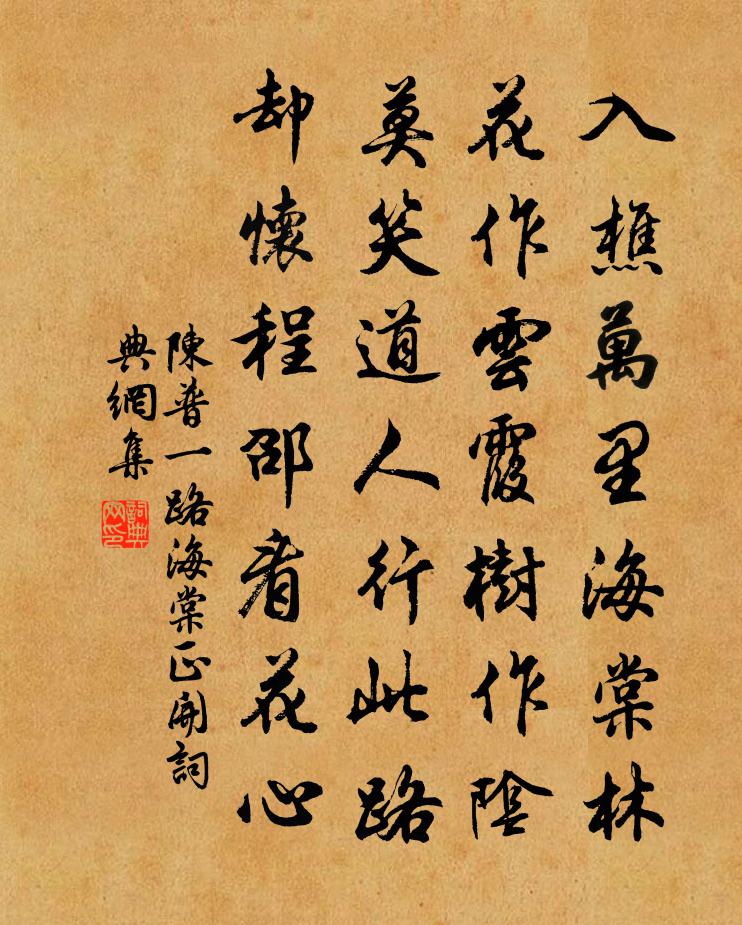 入樵萬里海棠林
花作雲霞樹作陰
莫笑道人行此路
却懷程邵看花心
陳普一路海棠正開詞
典網集
詞典
网印